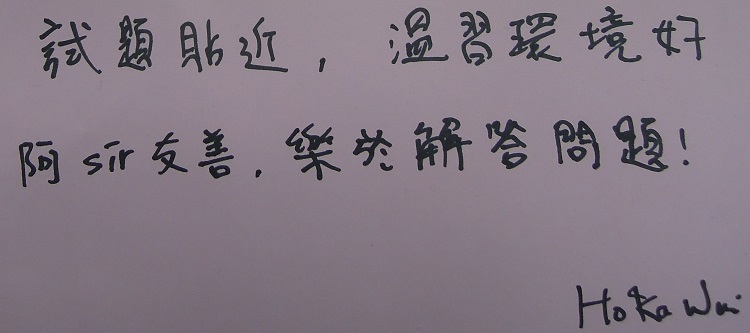 試題貼近，溫習環境好
阿sir友善，樂於解答問題！
Ho Ka Wai